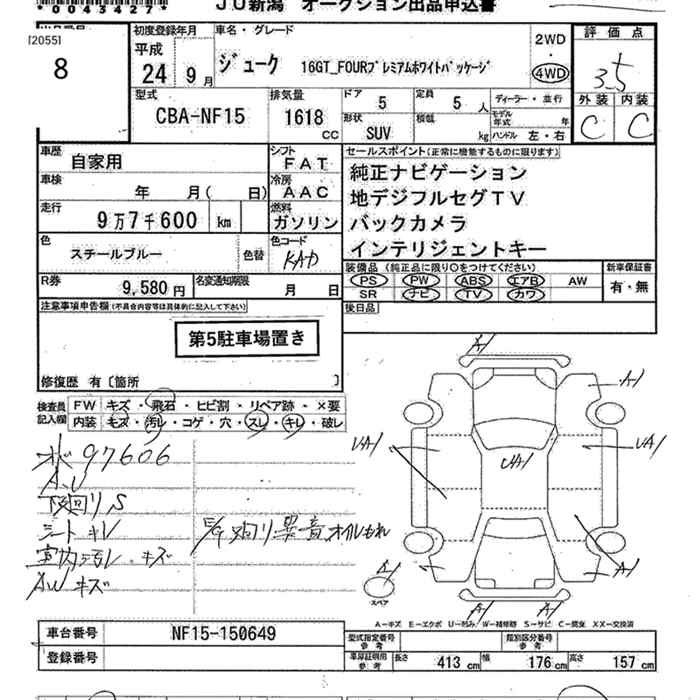 *0043427*
JU新潟 オークション出品申込書
[2055]
8
初度登録年月
平成
24年 9月
車名・グレード
ジューク 16GT_FOURプレミアムホワイトパッケージ
2WD
・
4WD
評価点
3.5
外装 内装
C C
型式
CBA-NF15
排気量
1618
CC
ドア 5
定員 5 人
形状 SUV
積載 kg
ディーラー・並行
モデル年式 年
ハンドル 左・右
車歴 自家用
シフト FAT
車検 年 月( 日)
冷房 AAC
走行 9万7千600 km
燃料 ガソリン
色 スチールブルー
色替
色コード KAD
R券 9,580円
名変通知期限 月 日
セールスポイント(正常に機能するものに限ります)
純正ナビゲーション
地デジフルセグTV
バックカメラ
インテリジェントキー
装備品(純正品に限り○をつけてください)
PS PW ABS エアB AW
SR ナビ TV カワ
新車保証書
有・無
後日品
注意事項申告欄(不具合内容等は具体的に記入して下さい)
第5駐車場置き
修復歴 有〔箇所 〕
検査員記入欄
FW キズ・飛石・ヒビ割・リペア跡・×要
内装 キズ・汚レ・コゲ・穴・スレ・キレ・破レ
97606
A、U
下回りS
シートキレ
E/G廻り異音オイルもれ
室内汚レ・キズ
AWキズ
A1
A1
A1
UA1
UA1
UA1
A1
A1
A1
A1
スペア
A-キズ E-エクボ U-凹み W-補修跡 S-サビ C-腐食 XX-交換済
車台番号 NF15-150649
登録番号
型式指定番号
参考
類別区分番号
参考
車庫証明用
参考
長さ 413 cm 幅 176 cm 高さ 157 cm